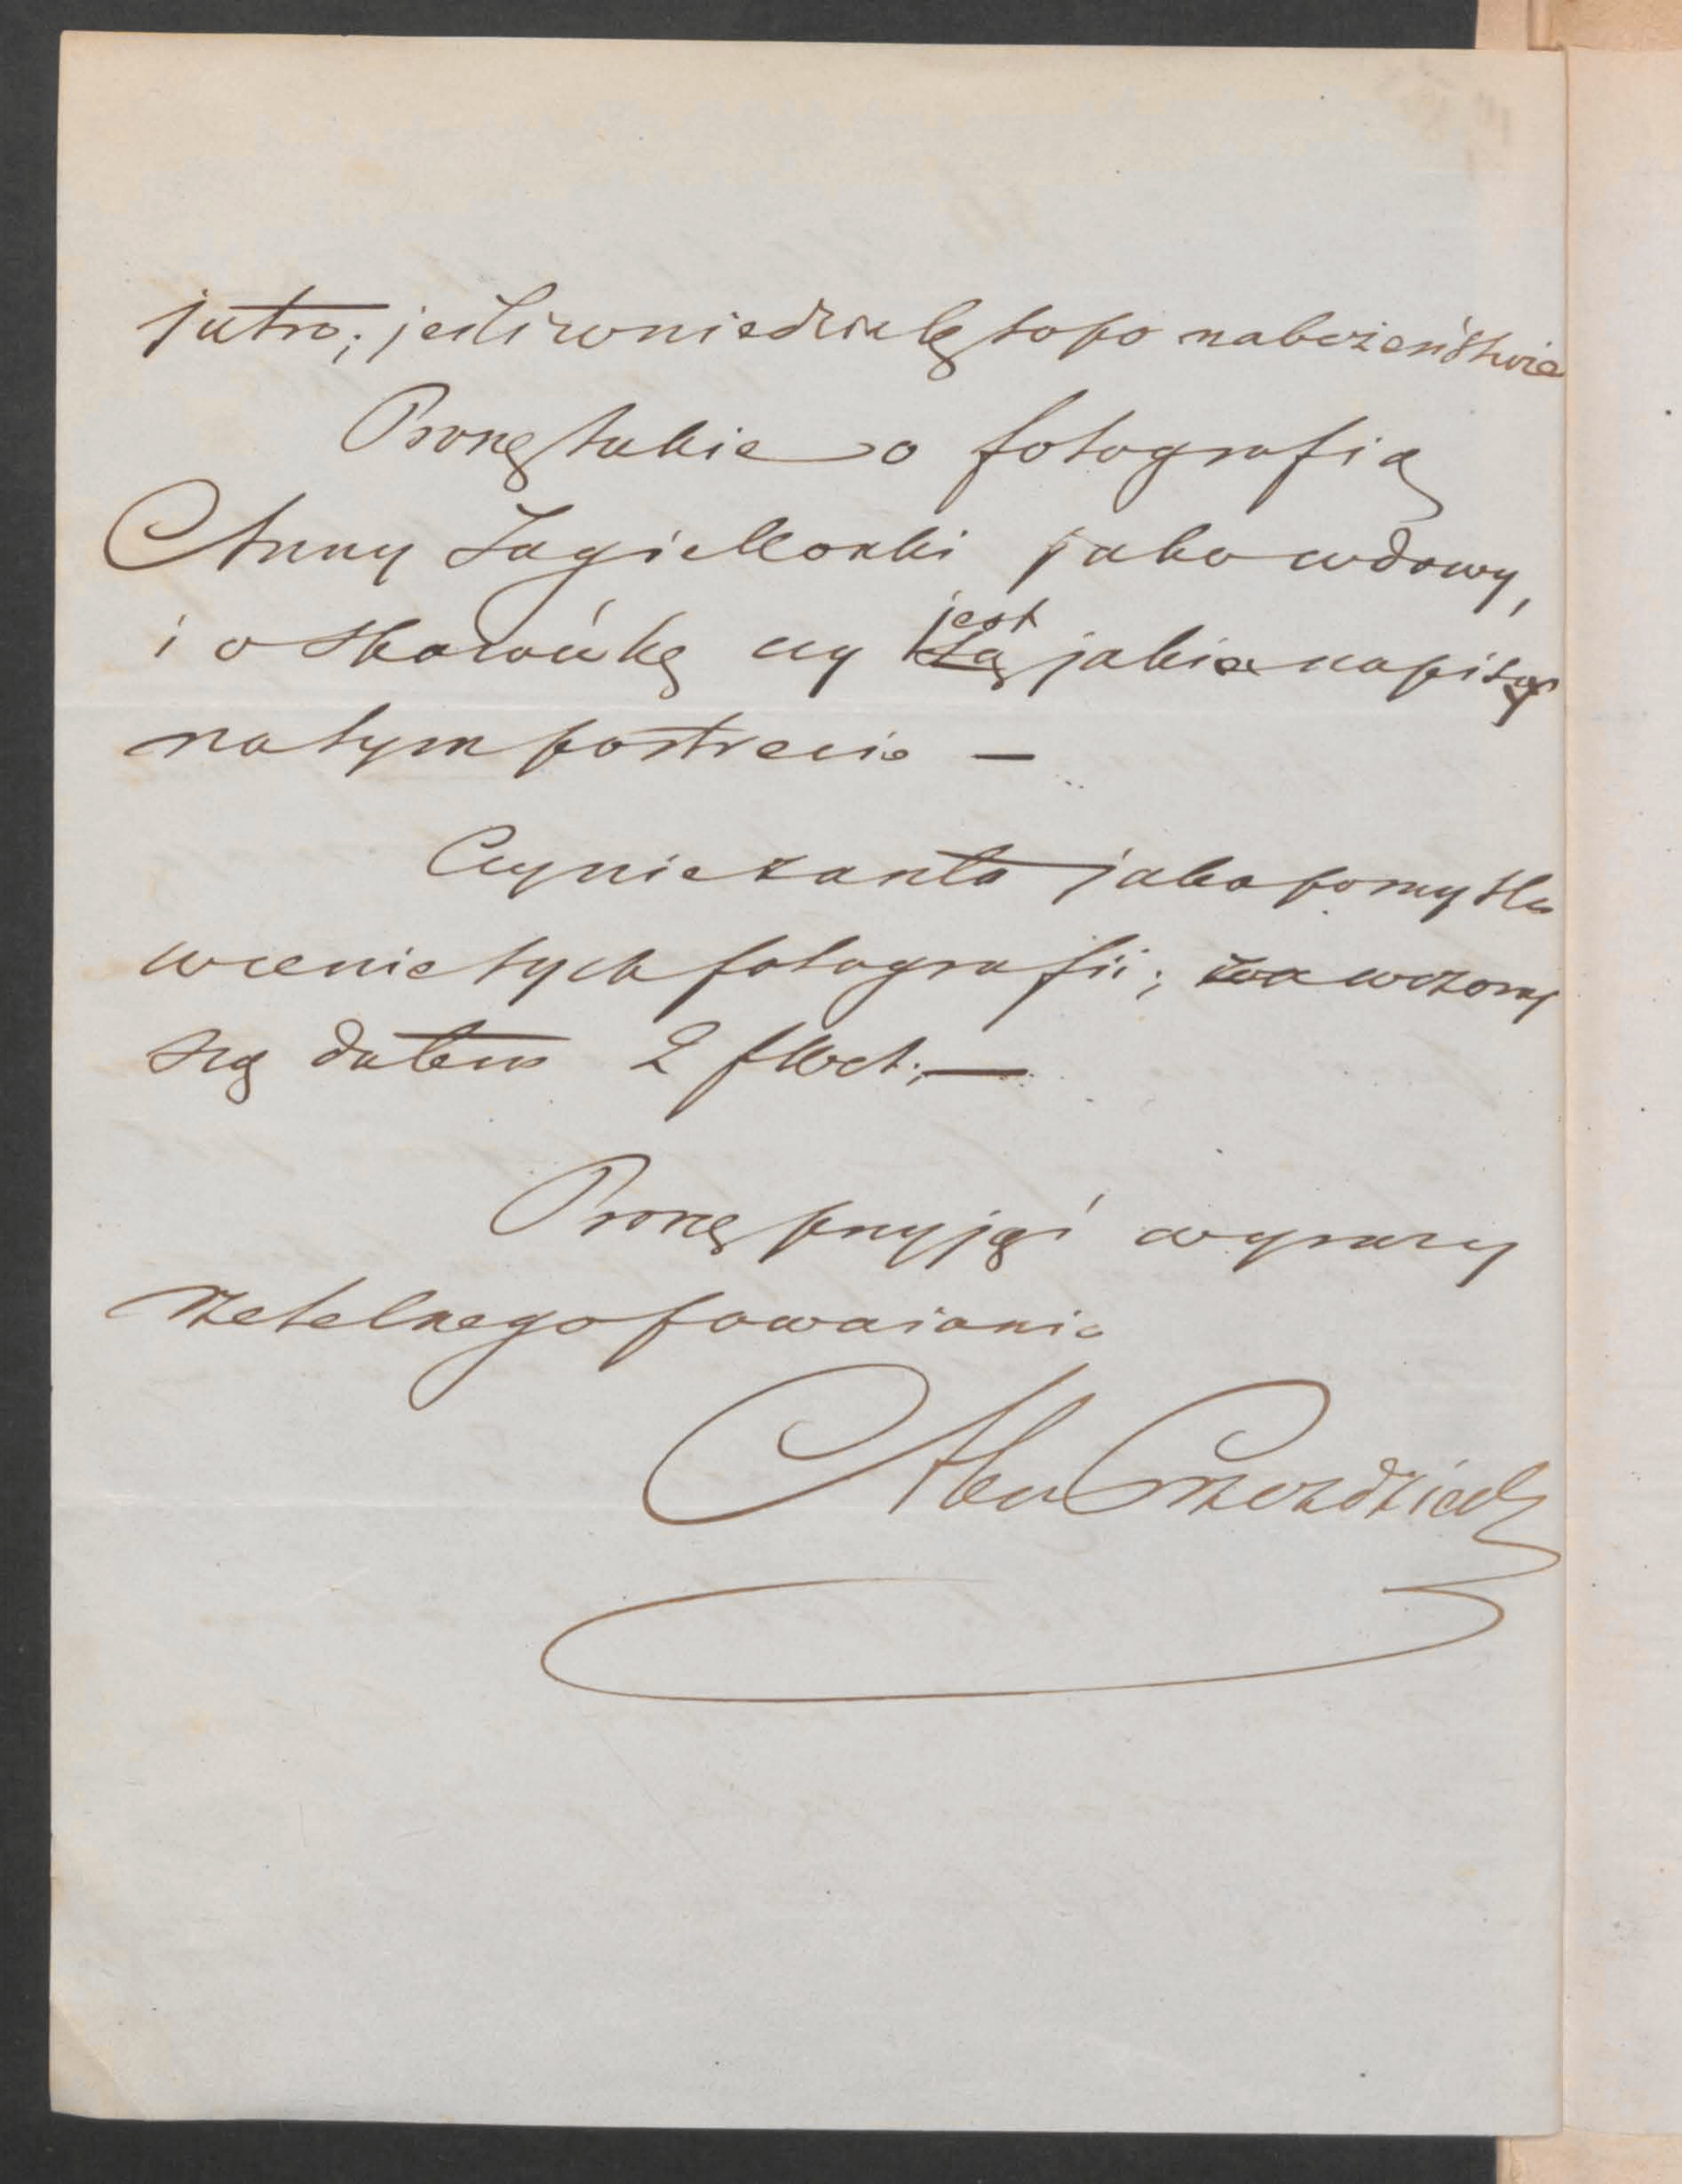 jutro; jeśli w niedzielę to po nabożeństwie
Proszę także o fotografią
Anny Jagiellonki jako wdowy,
i o skazówkę czy jest jaki napis
na tym portrecie —
Czy nie zaszła jaka pomyłka
w cenie tych fotografii; za wczoraj
szą dałem 2 f
Proszę przyjąć wyrazy
rzetelnego poważania
Alex Przezdziecki